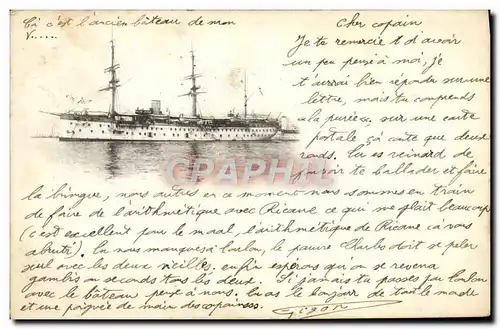 Çà c'est l'ancien bateau de mon
V.....
Cher copain
Je te remercie d'avoir
un peu pensé à moi, je
t'aurai bien répondu sur une
lettre, mais tu comprends
à la purée, sur une carte
postale çà coute que deux
ronds. Tu es veinard de
pouvoir te ballader et faire
la bingue, nous autres en ce moment nous sommes en train
de faire de l'arithmétique avec Ricane ce qui me plait beaucoup
(c'est excellent pour le moral, l'arithmétique de Ricane çà vous
abruti). tu nous manques à Toulon, le pauvre Charlos doit se peler
seul avec les deux vieilles. enfin espérons que on se reverra
tous les deux. Si jamais tu passes par Toulon
avec le bateau pense à nous. tu as le bonjour de tout le monde
et une poignée de main des copains.
Gigon
CPARAMA